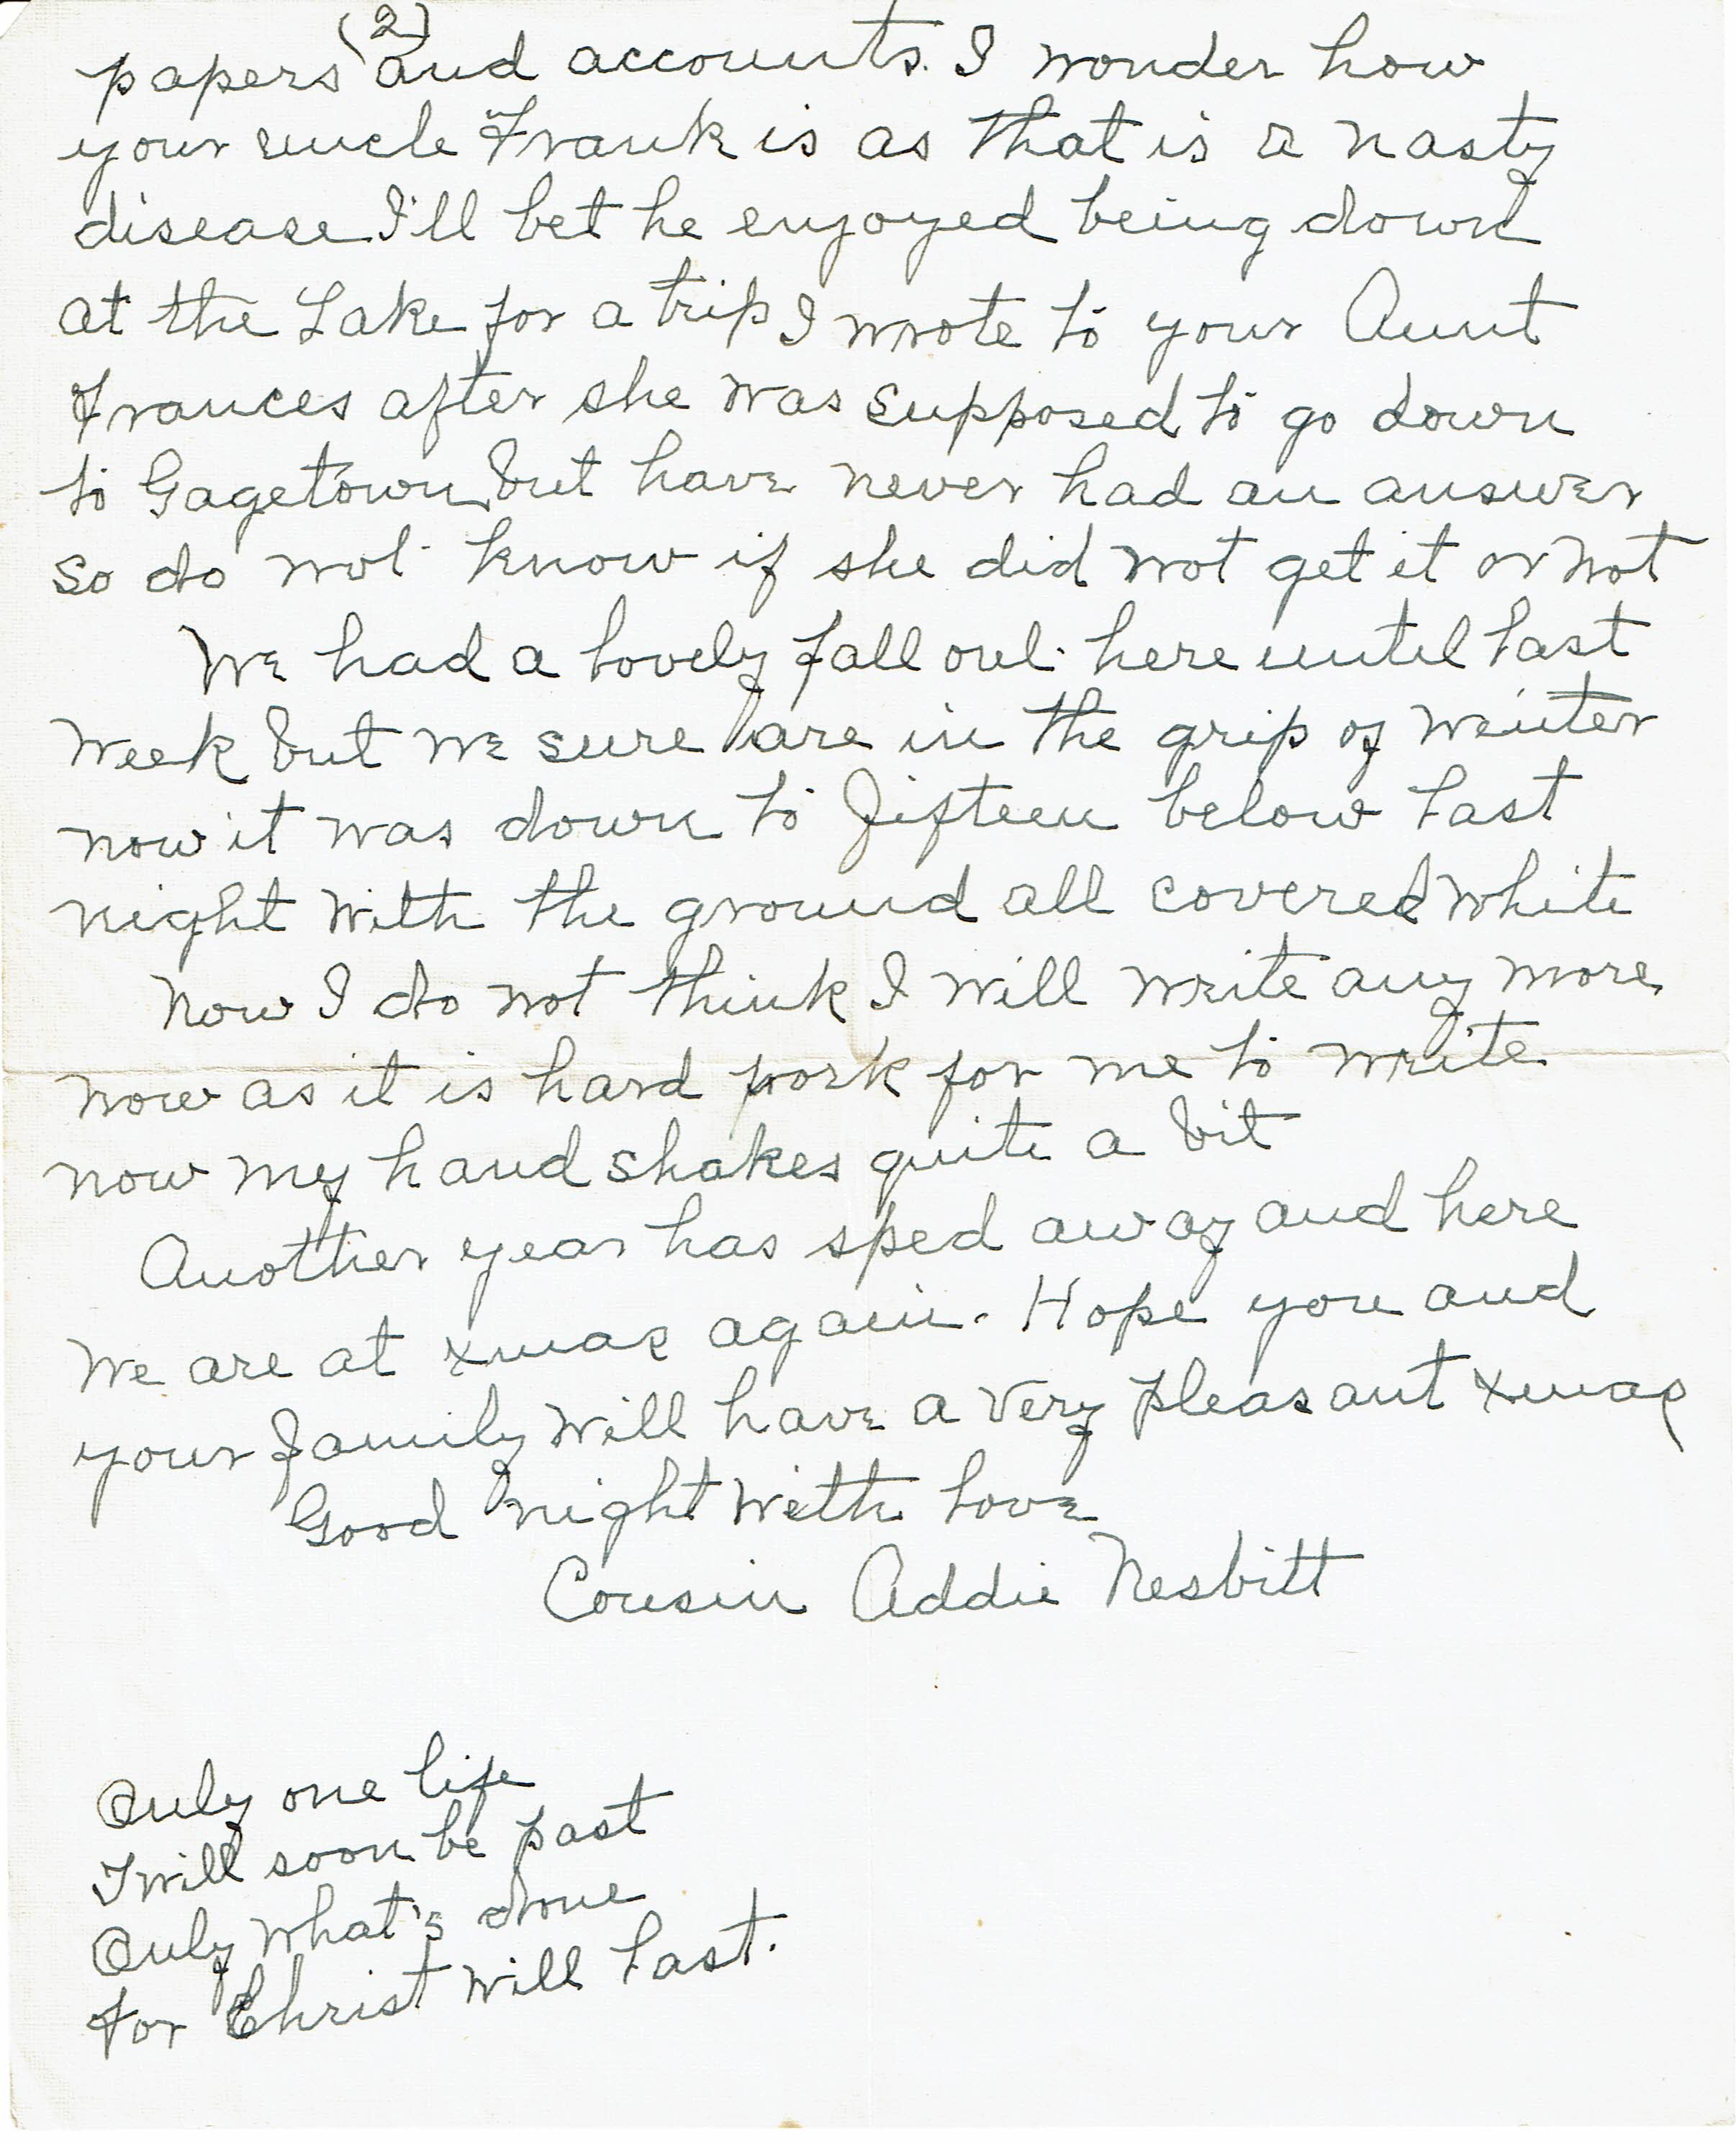 (2)
papers and accounts. I wonder how
your uncle Frank is as that is a nasty
disease I'll bet he enjoyed being down
at the Lake for a trip I wrote to your Aunt
Frances after she was supposed to go down
to Gagetown but have never had an answer
so do not know if she did not get it or not
We had a lovely fall out here until last
week but we sure are in the grip of winter
now it was down to fifteen below last
night with the ground all covered white
Now I do not think I will write any more
now as it is hard work for me to write
now my hand shakes quite a bit
Another year has sped away and here
we are at xmas again. Hope you and
your family will have a very pleasant xmas
Good night with love
Cousin Addie Nesbitt
Only one life
Twill soon be past
Only what's done
For Christ will last.